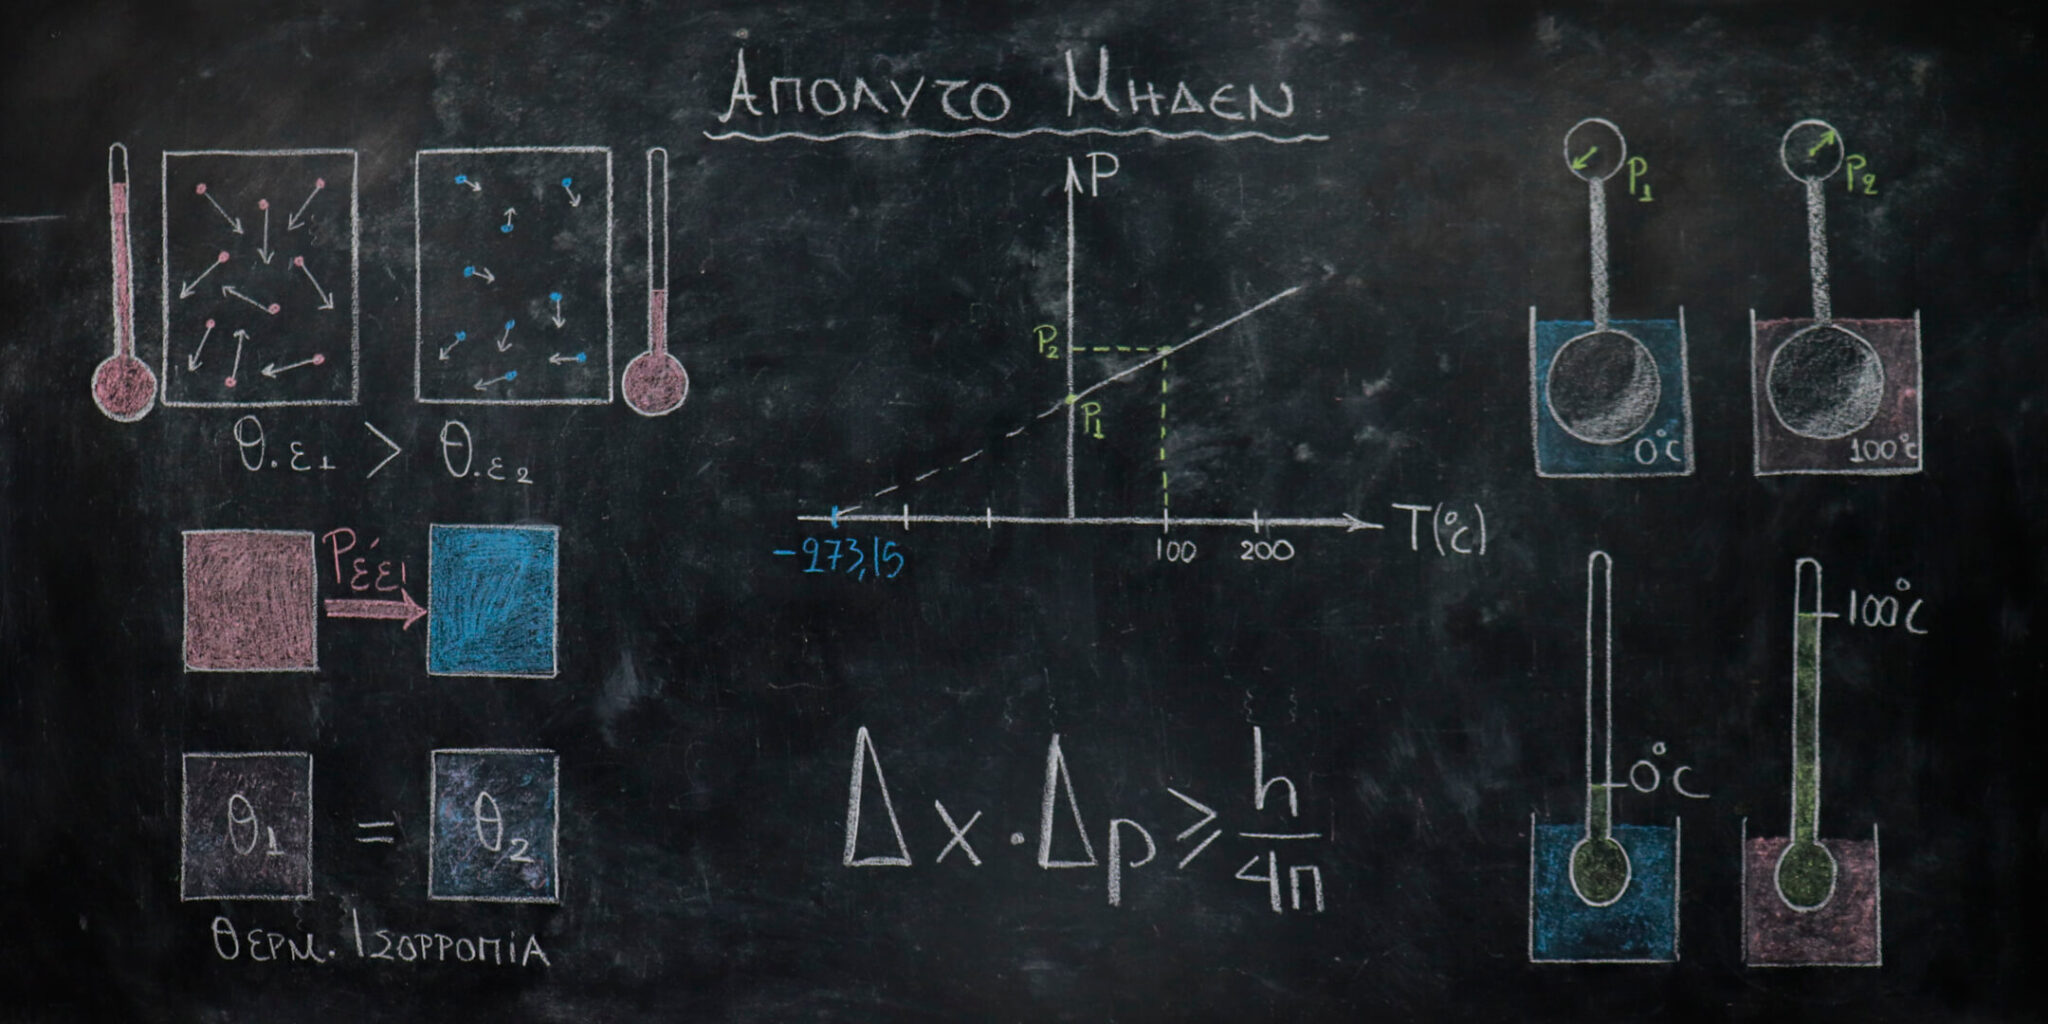 ΑΠΟΛΥΤΟ ΜΗΔΕΝ
Θ.ε1 > Θ.ε2
Ρέει
θ1 = θ2
ΘΕΡΜ. ΙΣΟΡΡΟΠίΑ
P
P2
P1
-273,15
100
200
T(°C)
Δx·Δp ≥ h/4π
P1
P2
0°C
100°C
0°C
100°C